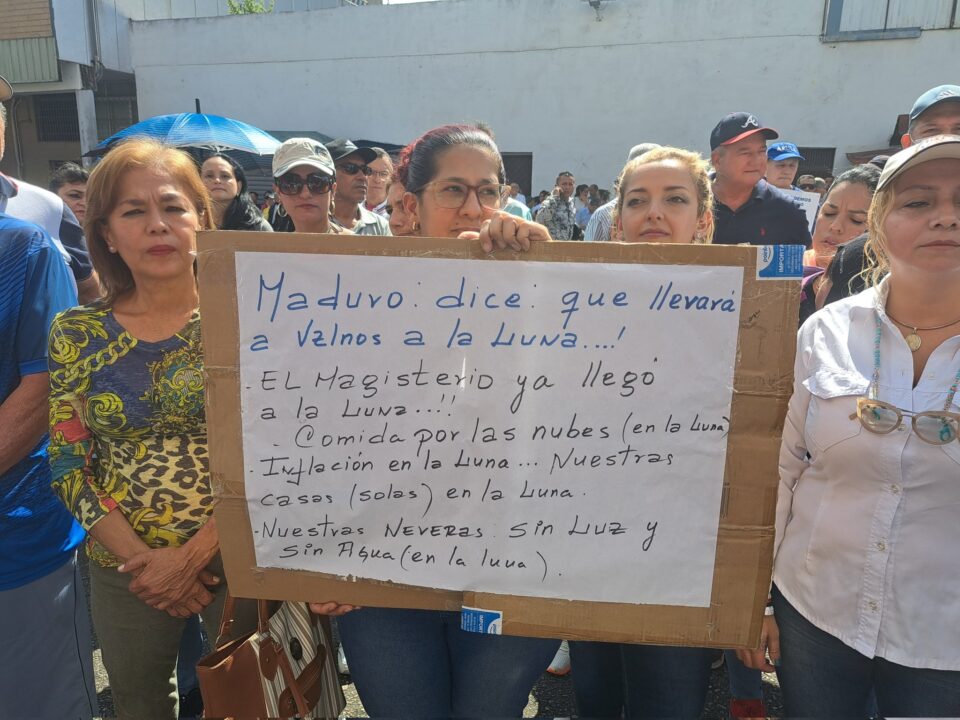 Maduro: dice: que llevará
a Vzlnos a la Luna....!
- EL Magisterio ya llegó
a la Luna..!!
- Comida por las nubes (en la Luna)
- Inflación en la Luna... Nuestras
casas (solas) en la Luna.
- Nuestras NEVERAS sin Luz y
sin Agua (en la luna).